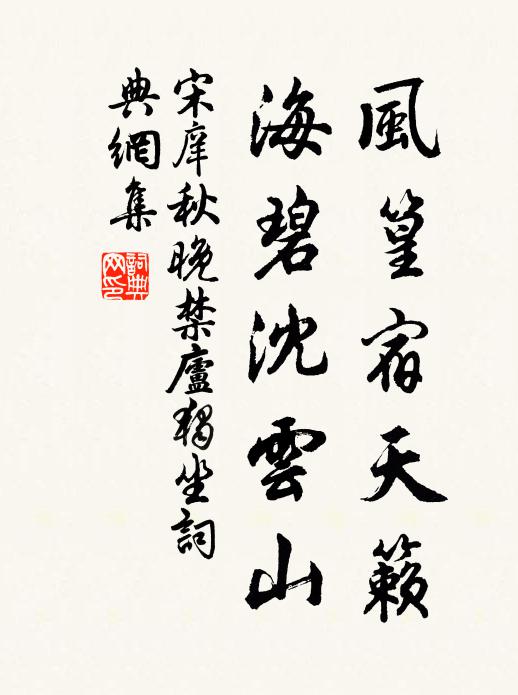 風篁宿天籟
海碧沈雲山
宋庠秋晚禁廬獨坐詞
典網集
詞典網印